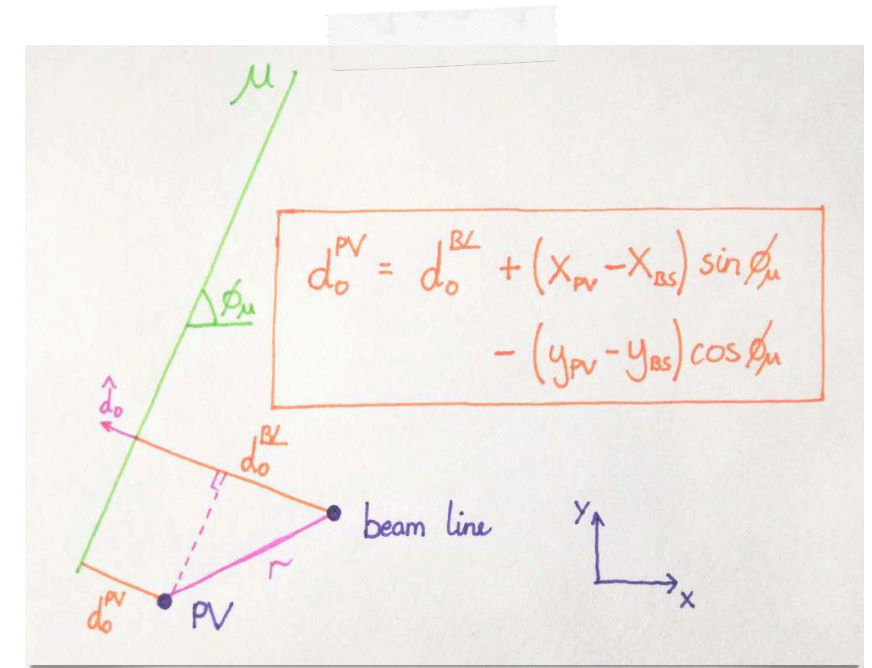 μ
d₀^PV = d₀^BL + (x_PV − x_BS) sin ϕ_μ
− (y_PV − y_BS) cos ϕ_μ
ϕ_μ
d̂₀
d₀^BL
beam line
r
d₀^PV
PV
y
x